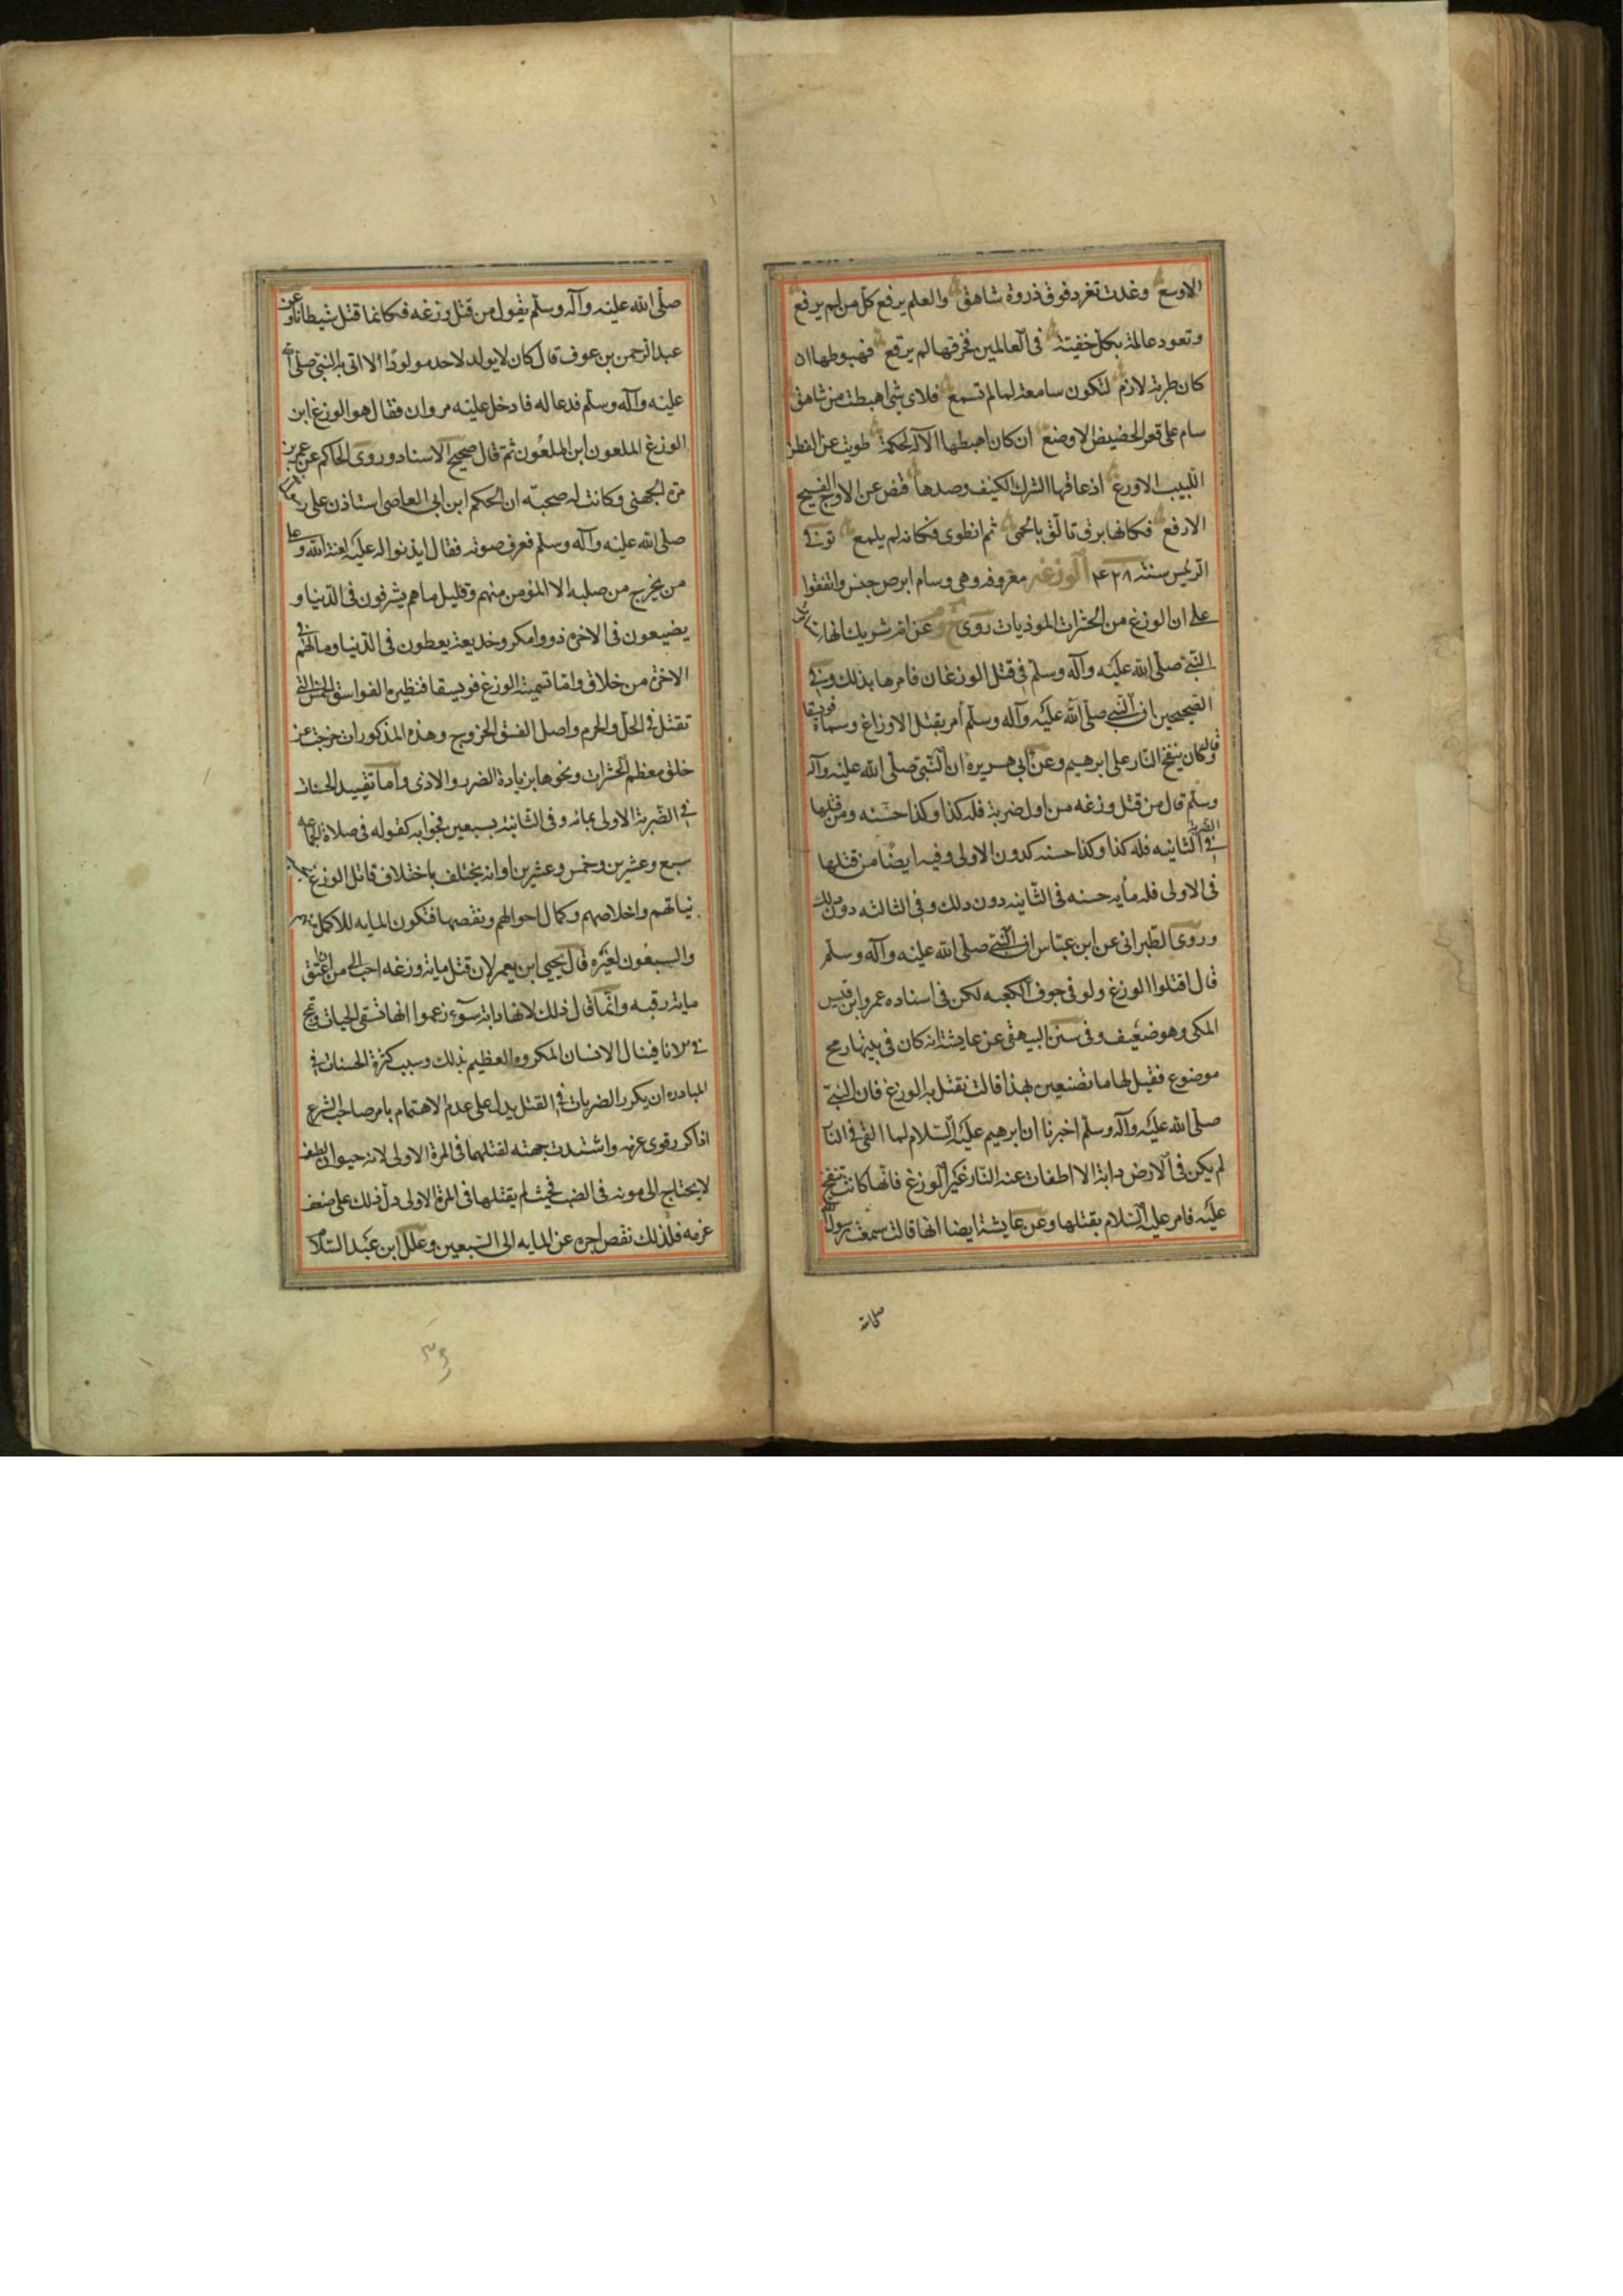 الاوسع وغدت تغرد فوق ذروة شاهق والعلم يرفع كل من لم يرفع
وتعود عالمة بكل خفية فى العالمين فخرقها لم يرقع فهبوطها ان
كان ضربة لازم لتكون سامعة لما لم تسمع فلاى شى اهبطت من شاهق
سام على قعر الحضيض الاوضع ان كان اهبطها الآله لحكمة طويت عن الفطن
اللبيب الاورع اذ عاقها الشرك الكثيف وصدها قفص عن الاوج الفسيح
الارفع فكانها برق تالق بالحمى ثم انطوى فكانه لم يلمع توفى
الرئيس سنة ٤٢٨ الوزغة معروفه وهى وسام ابرص جنس واتفقوا
على ان الوزغ من الحشرات الموذيات روى عن ام شريك انها
النبى صلى الله عليه وآله وسلم فى قتل الوزغان فامرها بذلك وفى
الصحيحين ان النبى صلى الله عليه وآله وسلم أمر بقتل الاوزاغ وسماه فويسقا
وقال كان ينفخ النار على ابرهيم وعن أبى هريره ان النبى صلى الله عليه وآله
وسلم قال من قتل وزغه من اول ضربة فله كذا وكذا حسنه ومن قتلها
فى الضربة الثانيه فله كذا وكذا حسنه كدون الاولى وفيه ايضا من قتلها
فى الاولى فله مأيه حسنه فى الثانيه دون دلك وفى الثالثه دون دلك
وروى الطبرانى عن ابن عباس ان النبى صلى الله عليه وآله وسلم
قال اقتلوا الوزغ ولو فى جوف الكعبه لكن فى اسناده عمر وابن قيس
المكى وهو ضعيف وفى سنن البيهقى عن عايشة انه كان فى بيتها رمح
موضوع فقيل لها ما تصنعين بهذا قالت نقتل به الوزغ فان النبى
صلى الله عليه وآله وسلم اخبرنا ان ابرهيم عليه السلام لما القى فى النار
لم يكن فى الارض دابة الا اطفات عنه النار غير الوزغ فانها كانت تنفخ
عليه فامر عليه السلام بقتلها وعن عايشة ايضا انها قالت سمعت رسول الله
صلى الله
صلى الله عليه وآله وسلم يقول من قتل وزغه فكانما قتل شيطانا وعن
عبد الرحمن بن عوف قال كان لا يولد لاحد مولودًا الا اتى به النبى صلى الله
عليه وآله وسلم فدعا له فادخل عليه مروان فقال هو الوزغ ابن
الوزغ الملعون ابن الملعون ثم قال صحيح الاسناد وروى الحاكم عن عمر بن
مرة الجهنى وكانت له صحبه ان الحكم ابن ابى العاصى استاذن على رسول الله
صلى الله عليه وآله وسلم فعرف صوته فقال ايذنوا له عليه لعنة الله وعلى
من يخرج من صلبه الا المؤمن منهم وقليل ما هم يشرفون فى الدنيا و
يضيعون فى الاخره ذووا مكر وخديعة يعطون فى الدنيا وما لهم فى
الاخرة من خلاق واما تسمية الوزغ فويسقا فنظيره الفواسق الخمس التى
تقتل فى الحل والحرم واصل الفسق الخروج وهذه المذكورات خرجت عن
خلق معظم الحشرات ونحوها بزيادة الضرر والاذى واما تقييد الحسنات
فى الضربة الاولى بمائه وفى الثانية بسبعين فجوابه كقوله فى صلاة الجماعه
سبع وعشرين وخمس وعشرين او انه يختلف باختلاف قاتل الوزغ
نياتهم واخلاصهم وكمال احوالهم ونقصها فتكون المايه للاكمل منهم
والسبعون لغيره قال يحيى ابن يعمر لان قتل ماية وزغه احب الى من ان اعتق
ماية رقبه وانما قال ذلك لانها دابة سوء زعموا انها تسقى الحيات وتمج
فى الانا فينال الانسان المكروه العظيم بذلك وسبب كثرة الحسنات فى
المبادره ان يكرر الضربات فى القتل يدل على عدم الاهتمام بامر صاحب الشرع
اذا كر وقوى عزمه واشتدت جهته لقتلها فى المرة الاولى لانه حيوان لطيف
لا يحتاج الى مونه فى الضرب فحيث لم يقتلها فى المرة الاولى دل ذلك على ضعف
عزمه فلذلك نقص اجره عن المايه الى السبعين وعلل ابن عبد السلام